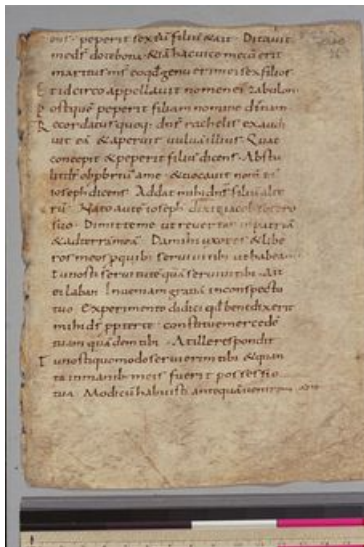 peperit sextū filiū & ait · Ditavit
me dš dote bona · &iā hac vice mecū erit
maritus mš eo qd genuerim ei sex filios
Et idcirco appellavit nomen ei zabulon
Post quē peperit filiam nomine dinam
Recordatus quoq· dnš rachelis exaudi
vit eā & aperuit vulvā illius · Quae
concepit & peperit filiū dicens · Abstu
lit dš obpbriū meū & vocavit nom̄
ioseph dicens · Addat mihi dnš filiū alte
rū · Nato autē ioseph dixit iacob socero
suo · Dimitte me ut revertar in patriā
& ad terrā meā · Da mihi uxores & libe
ros meos p quib; servivi tibi ut habeam
Tu nosti servitutē quā servivi tibi · Ait
ei laban · Inveniam gratiā in conspectu
tuo · Experimento didici qd benedixerit
mihi dš ppter te · constitue mercedē
tuam quā dem tibi · At ille respondit
Tu nosti quomodo servierim tibi & quan
ta in manib; meis fuerit possessio
tua · Modicū habuisti antequā venirem